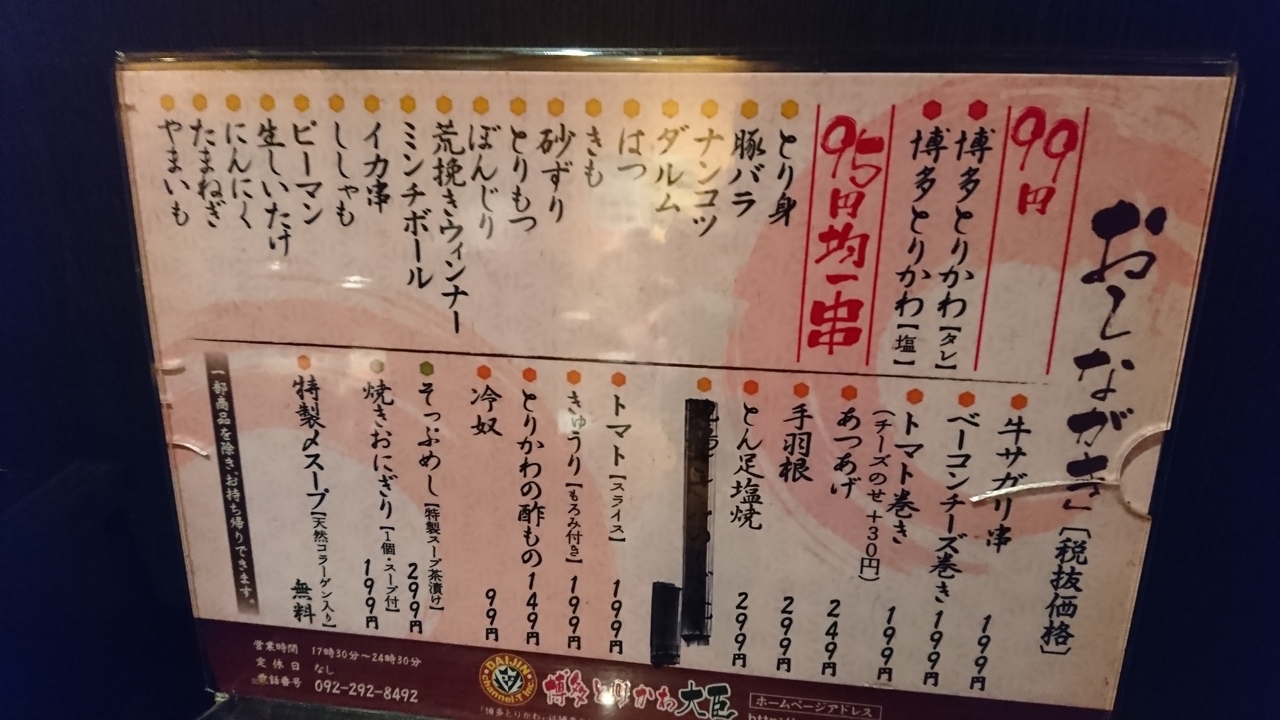 おしながき
[税抜価格]
99円
博多とりかわ【タレ】
博多とりかわ【塩】
95円均一串
とり身
豚バラ
ナンコツ
ダルム
はつ
きも
砂ずり
とりもつ
ぼんじり
荒挽きウィンナー
ミンチボール
イカ串
ししゃも
ピーマン
生しいたけ
にんにく
たまねぎ
やまいも
牛サガリ串 199円
ベーコンチーズ巻き 199円
トマト巻き 199円
(チーズのせ +30円)
あつあげ 249円
手羽根 299円
とん足塩焼 299円
トマト[スライス] 199円
きゅうり[もろみ付き] 199円
とりかわの酢もの 149円
冷奴 99円
そっぷめし[特製スープ茶漬け] 299円
焼きおにぎり[1個・スープ付] 199円
特製〆スープ[天然コラーゲン入り] 無料
一部商品を除き、お持ち帰りできます。
営業時間 17時30分〜24時30分
定休日 なし
電話番号 092-292-8492
DAIJIN
博多とりかわ大臣
ホームページアドレス